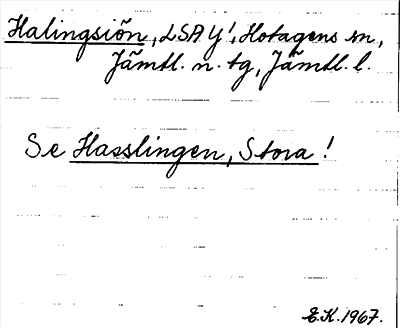 Halingsiõn, LSAY!, Hotagens sn,
Jämtl. n. tg, Jämtl. l.
Se Hasslingen, Stora!
E.K. 1967.